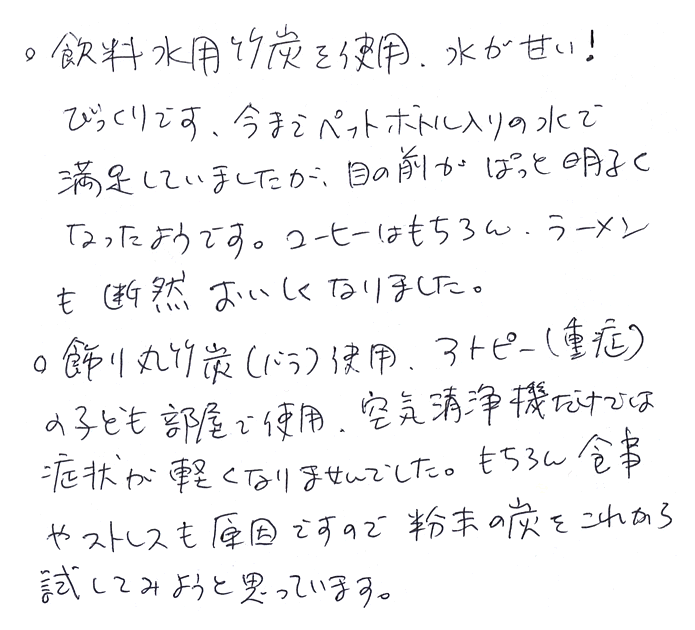 ○ 飲料水用竹炭を使用、水が甘い!
びっくりです、今までペットボトル入りの水で
満足していましたが、目の前がぱっと明るく
なったようです。コーヒーはもちろん、ラーメン
も断然おいしくなりました。
○ 飾り丸竹炭(バラ)使用、アトピー(重症)
の子ども部屋で使用、空気清浄機だけでは
症状が軽くなりませんでした。もちろん食事
やストレスも原因ですので粉末の炭をこれから
試してみようと思っています。